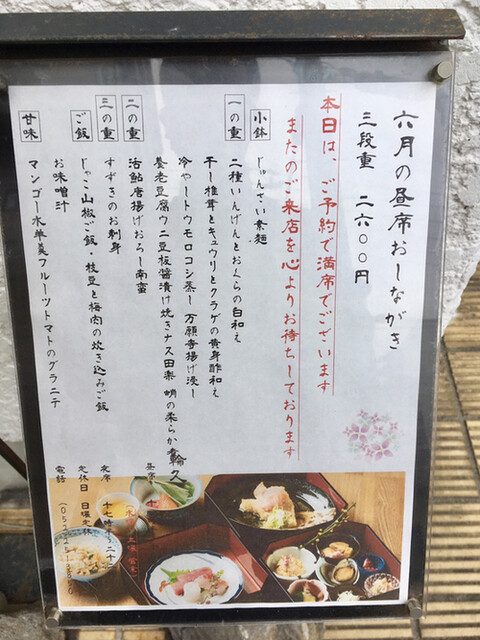 六月の昼席おしながき
三段重 二六〇〇円
本日は、ご予約で満席でございます
またのご来店を心よりお待ちしております
小鉢 じゅんさい素麺
一の重 二種いんげんとおくらの白和え
干し椎茸とキュウリとクラゲの黄身酢和え
冷やトウモロコシ蒸し 万願寺揚げ浸し
養老豆腐ウニ豆板醤漬け焼きナス田楽 蛸の柔らか煮
二の重 活鮎唐揚げおろし南蛮
三の重 すずきのお刺身
ご飯 じゃこ山椒ご飯・枝豆と梅肉の炊き込みご飯
お味噌汁
甘味 マンゴー水羊羹フルーツトマトのグラニテ
輪久
昼席
夜席 十七時
定休日 日曜定休
電話